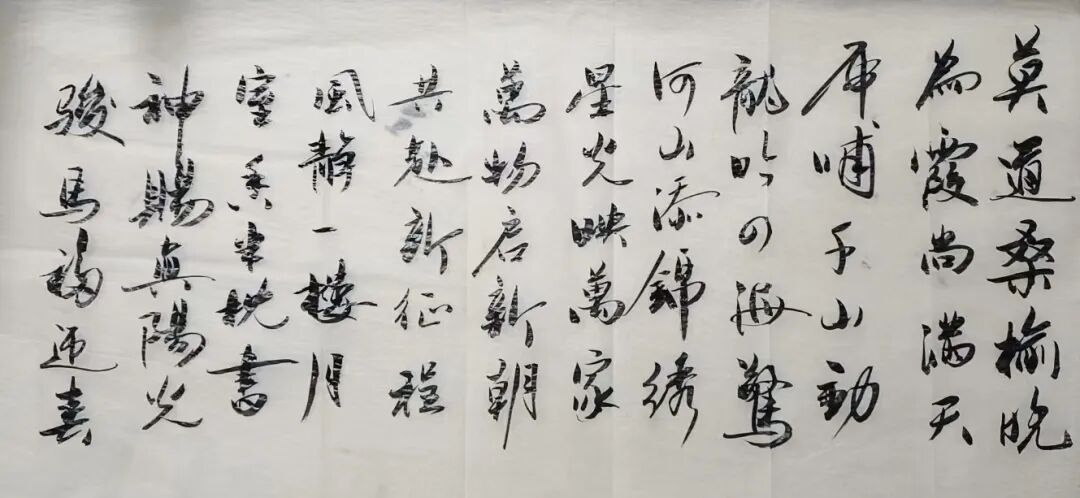 莫道桑榆晚
為霞尚满天
虎啸千山動
龍吟四海驚
河山添錦绣
星光映萬家
萬物启新朝
共赴新征程
風靜一樓月
室香半枕書
神賜真陽光
骏馬福迎喜